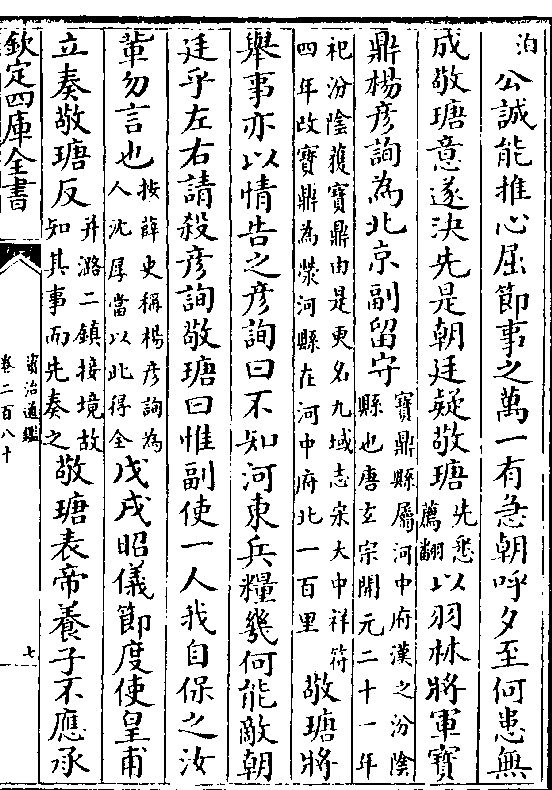 泊
公誠能推心屈節事之萬一有急朝呼夕至何患無
成敬瑭意遂決先是朝廷疑敬瑭先悉薦翻以羽林將軍寶
鼎楊彥詢為北京副留守寶鼎縣屬河中府漢之汾陰縣也唐玄宗開元二十一年
祀汾陰獲寶鼎由是更名九域志宋大中祥符四年改寶鼎為滎河縣在河中府北一百里敬瑭將
舉事亦以情告之彥詢曰不知河東兵糧幾何能敵朝
廷乎左右請殺彥詢敬瑭曰惟副使一人我自保之汝
軰勿言也按薛史稱楊彥詢為人沈厚當以此得全戊戌昭儀節度使皇甫
立奏敬瑭反并潞二鎮接境故知其事而先奏之敬瑭表帝養子不應承
欽定四庫全書
資治通鑑
卷二百八十
七